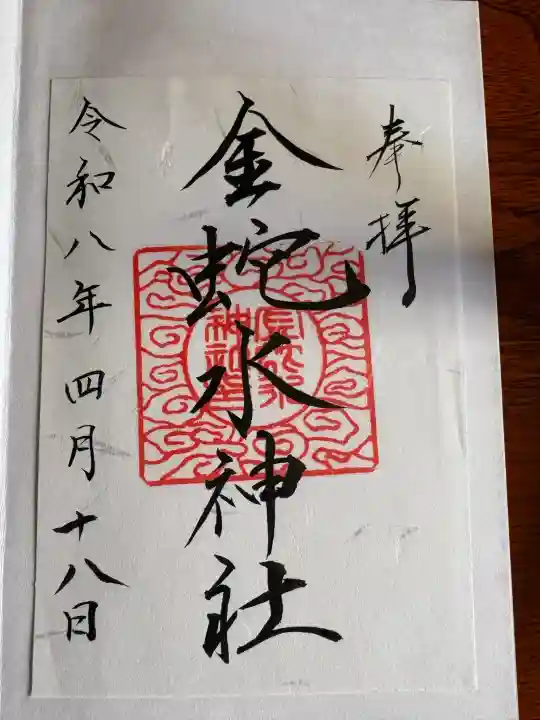 奉拝
金蛇水神社
令和八年四月十八日